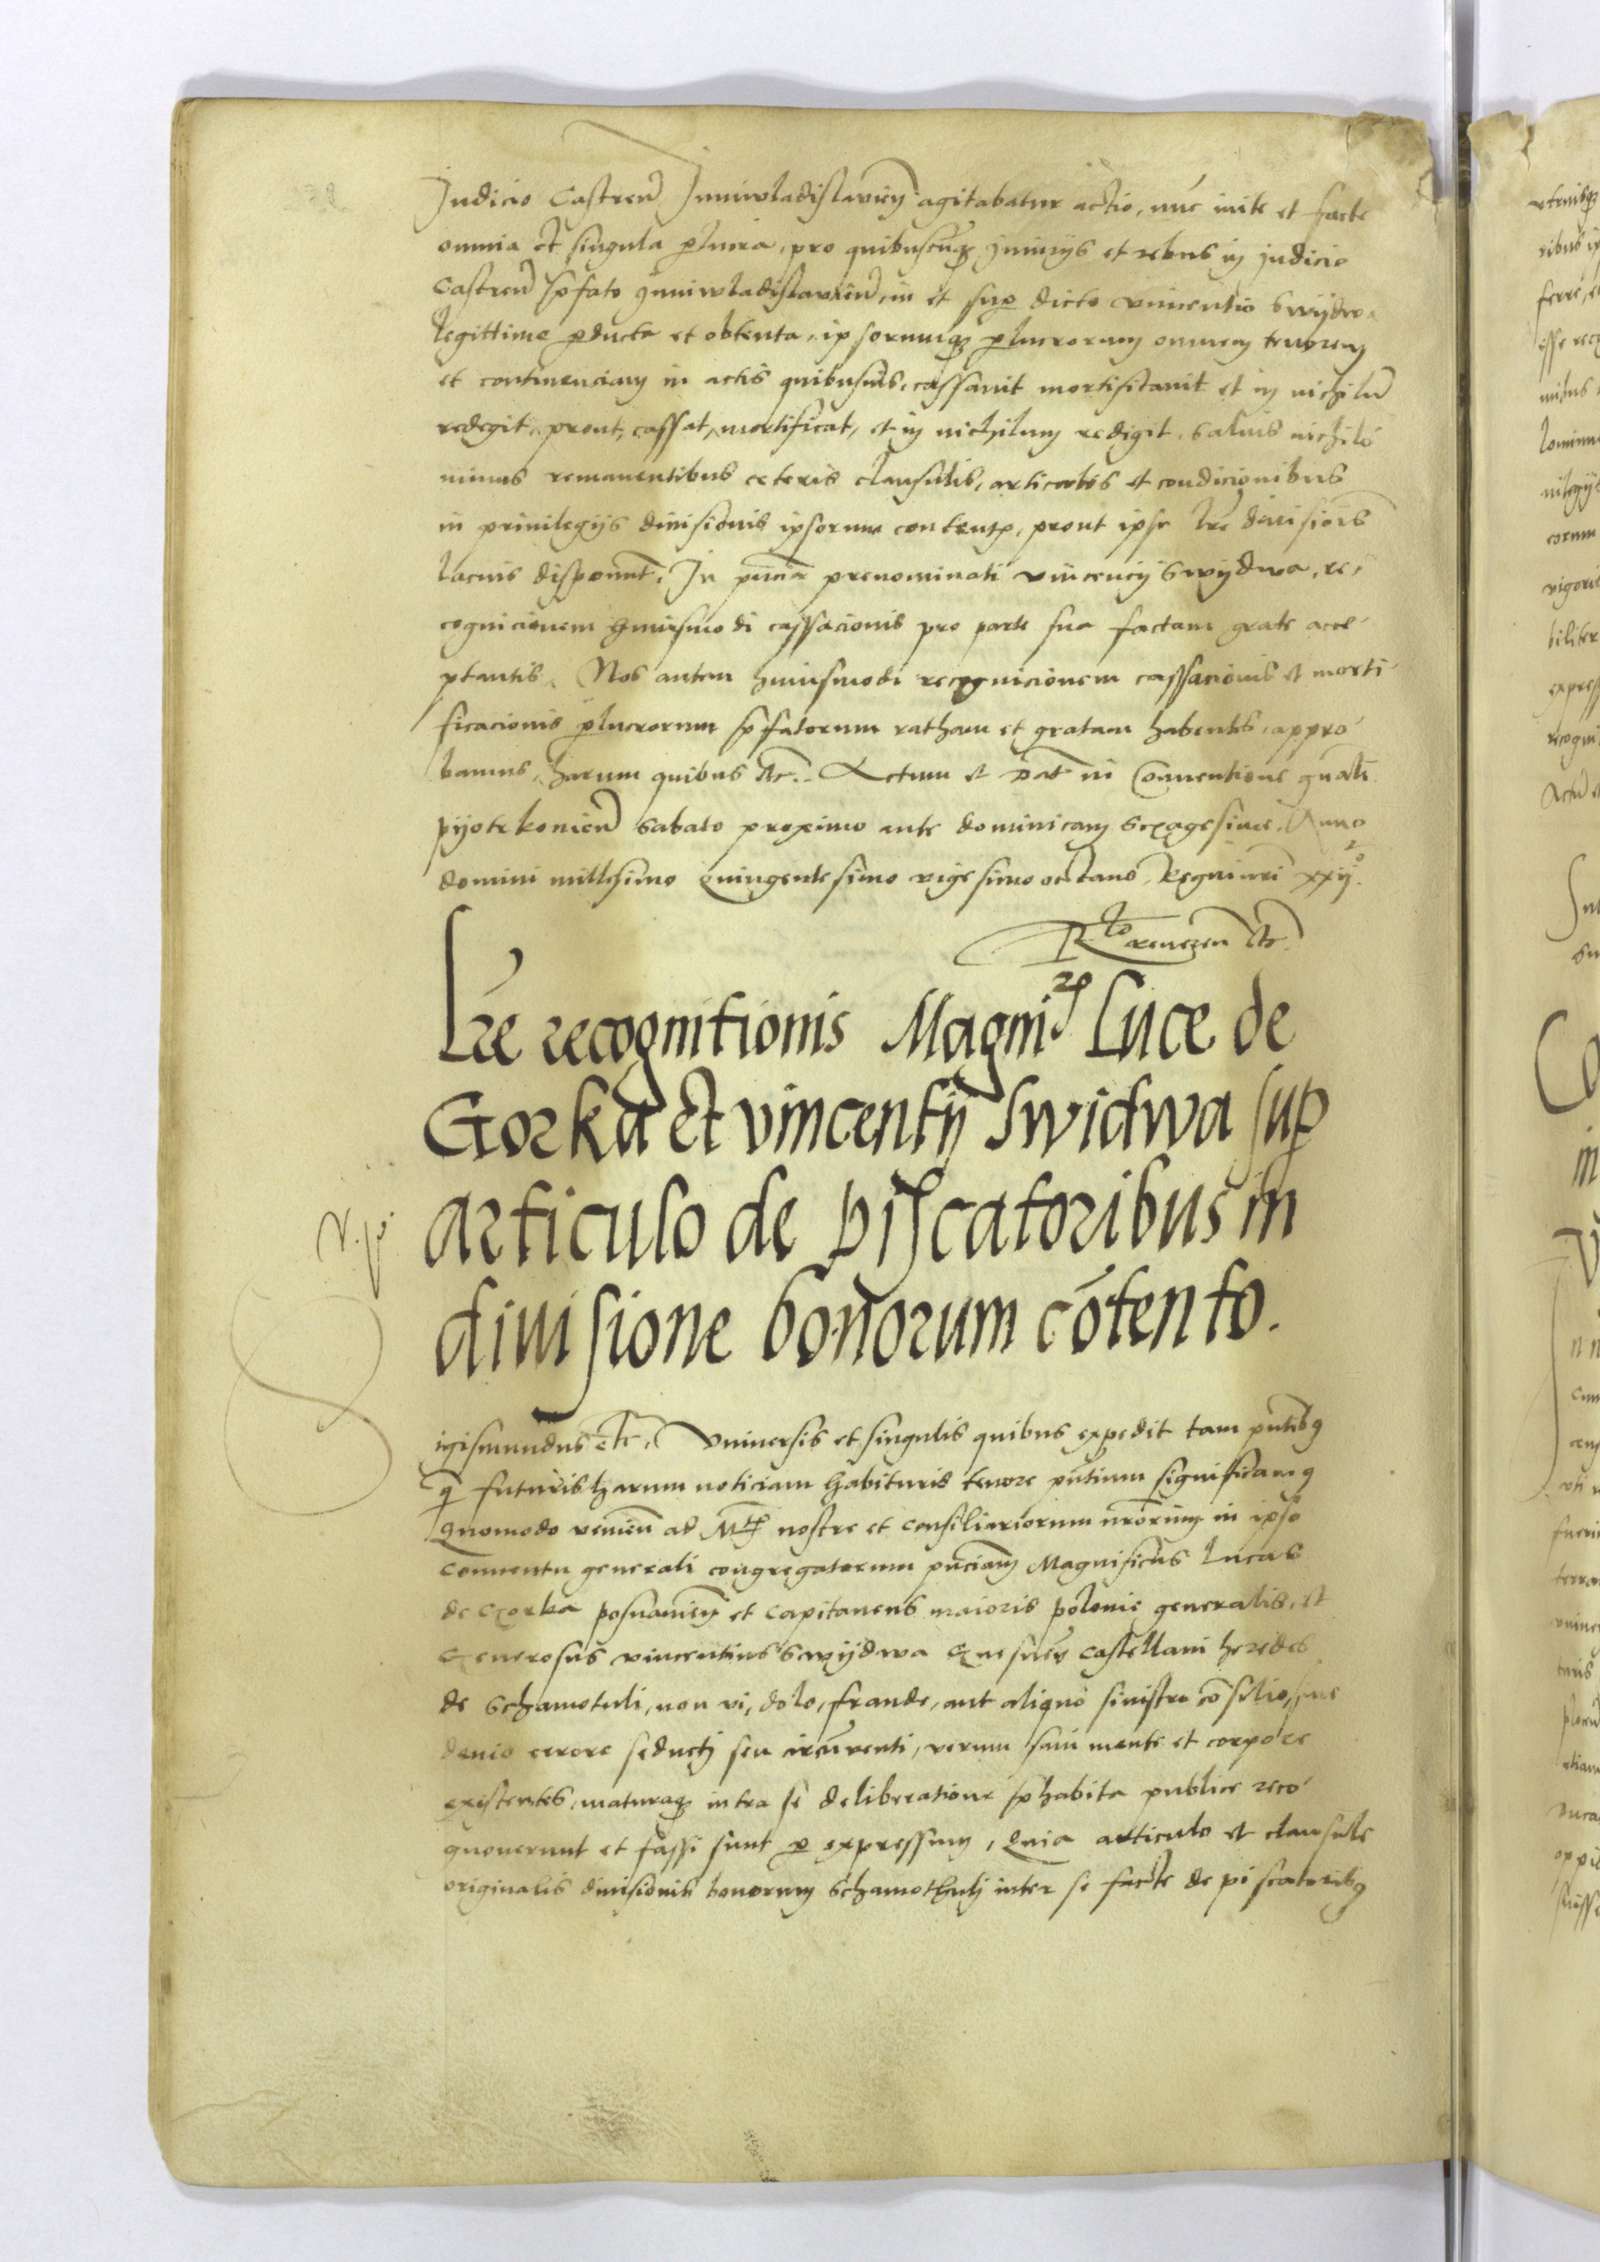 Judicio Castren Juniwladislavien agitabatur actio, nunc inite et facte
omnia et singula plucra, pro quibuscunq iniurys et rebus in judicio
Castren pfato Juniwladislavien, in et sup dicto vincentio Swydwa
legittime producta et obtenta, ipsorumq plucrorum omnem tenorem
et continenciam in actis quibusuis, cassavit mortificavit et in nichilu
redegit, prout, cassat, mortificat, et in nichilum redigit, saluis nichilo
minus remanentibus ceteris clausulis, articulis et condicionibus
in priuilegiis diuisionis ipsorum contentis, prout ipse lre diuisiois
lacius disponunt. In pncia prenominati vincencij Swydwa, re,
cognicionem huiusmodi cassacionis pro parte sua factam grate acce
ptantis. Nos autem huiusmodi recognicionem cassacionis et morti
ficacionis plucrorum pfatorum ratham et gratam habentes, appro
bamus, harum quibus etc. Actum et Dat in Conventione gnali
pyotrkonien Sabato proximo ante dominicam Sexagesime. Anno
domini millesimo quingentesimo vigesimo octavo. Regni nri xxij.
Rto etc.
Lre recognitionis Magnici Luce de
Gorka et vincentij Swidwa sup
articulo de piscatoribus in
diuisione bonorum cōtento.
igismundus etc. Vniuersis et singulis quibus expedit tam pntibus
q futuris harum noticiam habituris tenore pntium significamus
Quomodo venien ad Mtis nostre et consiliariorum nrorum in ipso
conventu generali congregatorum pnciam Magnificus Lucas
de Gorka posnanien et Capitaneus maioris polonie generalis, et
Generosus vincentius Swydwa Gnesnen castellani heredes
de Schamotuli, non vi, dolo, fraude, aut aliquo sinistro cōsilio, sine
deuio errore seducti seu circūventi, verum sani mente et corpore
existentes, maturaq intra se deliberatione phabita publice reco
gnoverunt et fassi sunt p expressum, Quia articulo et clausule
originalis diuisionis bonorum Schamothuli inter se facte de piscatoribus